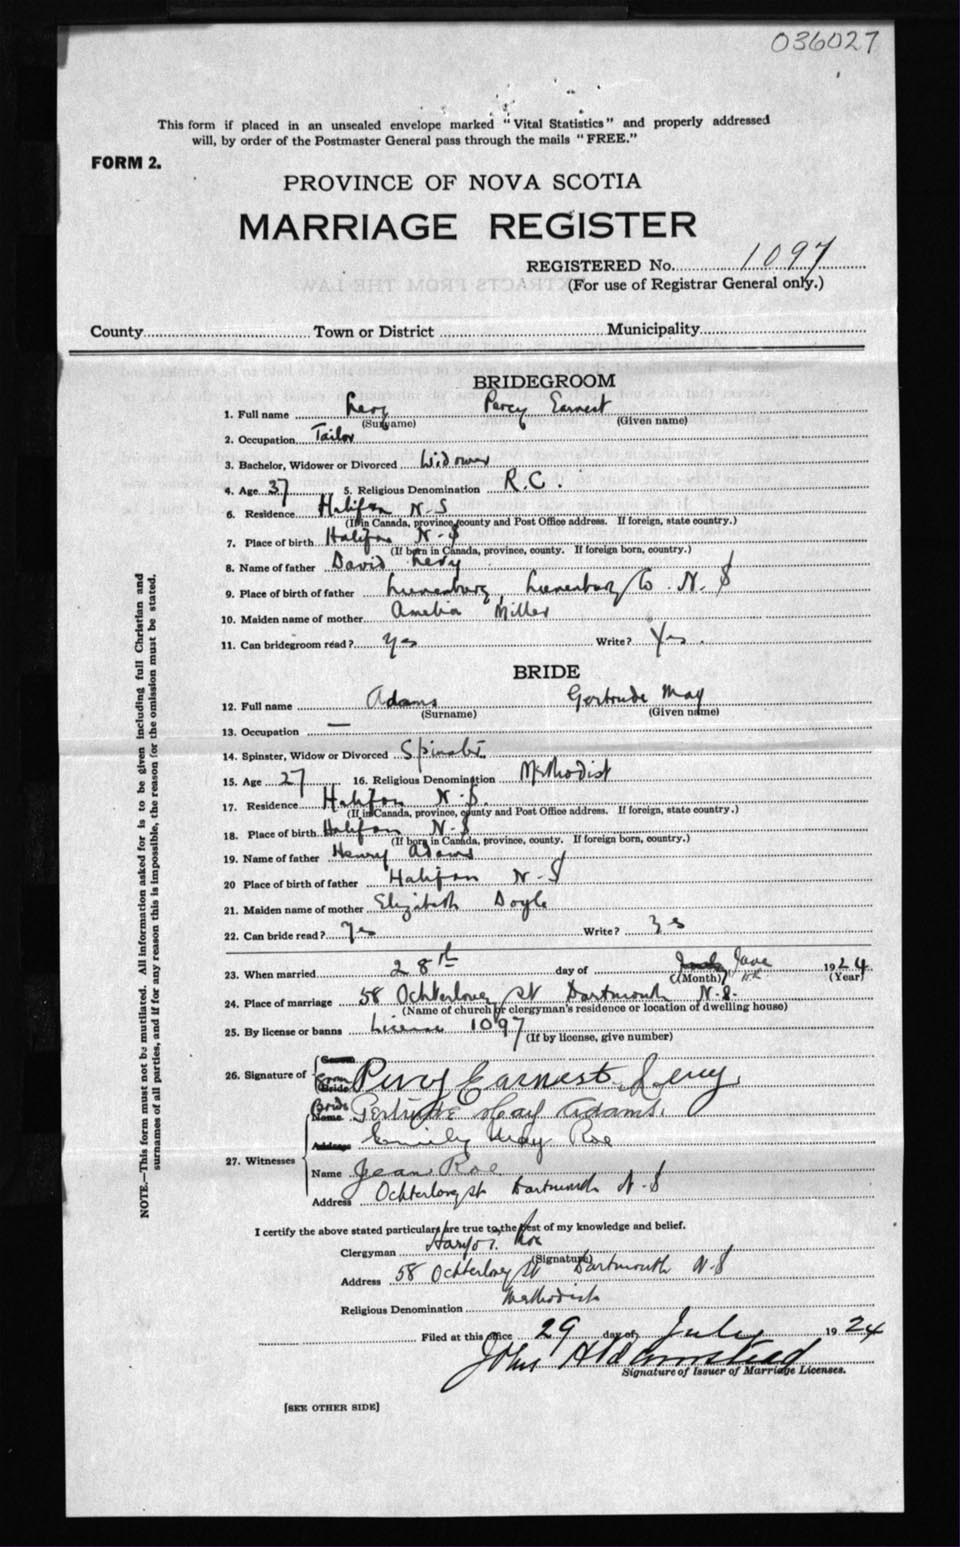 036027
This form if placed in an unsealed envelope marked "Vital Statistics" and properly addressed
will, by order of the Postmaster General pass through the mails "FREE."
FORM 2.
PROVINCE OF NOVA SCOTIA
MARRIAGE REGISTER
REGISTERED No. 1097
(For use of Registrar General only.)
County Town or District Municipality
BRIDEGROOM
1. Full name Levy Percy Earnest
(Surname) (Given name)
2. Occupation Tailor
3. Bachelor, Widower or Divorced Widower
4. Age 37 5. Religious Denomination R.C.
6. Residence Halifax N.S
(If in Canada, province, county and Post Office address. If foreign, state country.)
7. Place of birth Halifax N-S
(If born in Canada, province, county. If foreign born, country.)
8. Name of father David Levy
9. Place of birth of father Lunenburg, Lunenburg Co N.S
10. Maiden name of mother Amelia Miller
11. Can bridegroom read? Yes Write? Yes.
BRIDE
12. Full name Adams Gertrude May
(Surname) (Given name)
13. Occupation —
14. Spinster, Widow or Divorced Spinster
15. Age 27 16. Religious Denomination Methodist
17. Residence Halifax N.S.
(If in Canada, province, county and Post Office address. If foreign, state country.)
18. Place of birth Halifax N-S
(If born in Canada, province, county. If foreign born, country.)
19. Name of father Henry Adams
20 Place of birth of father Halifax N-S
21. Maiden name of mother Elizabeth Doyle
22. Can bride read? Yes Write? Yes
23. When married 28th day of June 1924
(Month) (Year)
24. Place of marriage 58 Ochterloney St Dartmouth N.S.
(Name of church or clergyman's residence or location of dwelling house)
25. By license or banns License 1097
(If by license, give number)
26. Signature of Groom Percy Earnest Levy.
Bride Gertrude May Adams.
Emily May Roe
27. Witnesses
Name Jean Roe
Address Ochterloney St Dartmouth N-S
I certify the above stated particulars are true to the best of my knowledge and belief.
Clergyman Roe
(Signature)
Address 58 Ochterloney St Dartmouth N-S
Religious Denomination Methodist
Filed at this office 29 day of July 1924
John
Signature of Issuer of Marriage Licenses.
[SEE OTHER SIDE]
NOTE.—This form must not be mutilated. All information asked for is to be given including full Christian and
surnames of all parties, and if for any reason this is impossible, the reason for the omission must be stated.